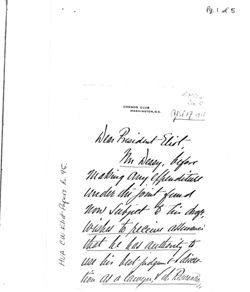 Pg. 1 of 5
COSMOS CLUB
WASHINGTON, D.C.
Dear President Eliot
Mr Dewey, before
making any expenditures
under the joint fund
now subject to his
wishes to receive assurance
that he has authority to
use his best judgment &
tion as a lawyer & the
HUA CW Eliot Papers